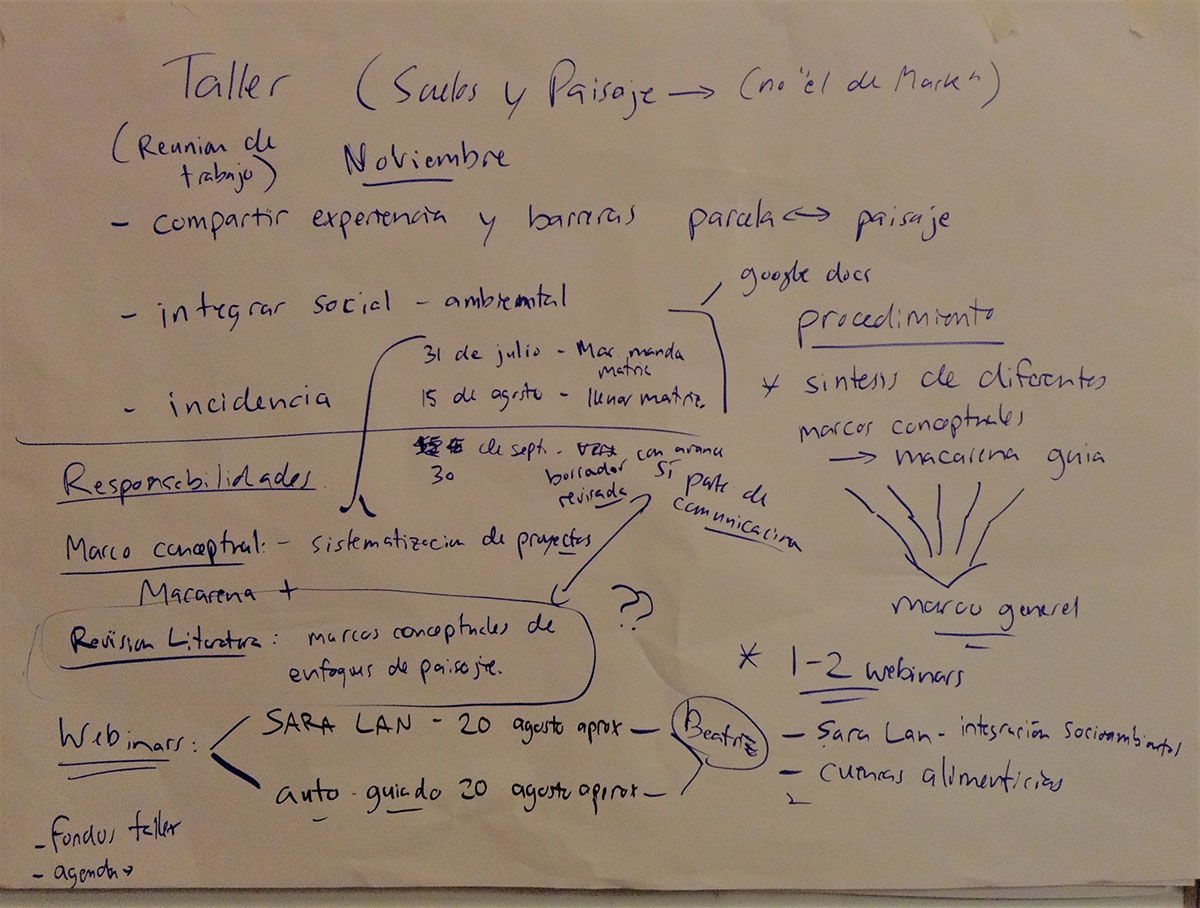 Taller (Suelos y Paisaje → (no "el de Mark")
(Reunion de trabajo) Noviembre
- compartir experiencia y barreras parcela ↔ paisaje
- integrar social - ambiental
google docs
31 de julio - Mac manda
matriz
15 de agosto - llenar matriz.
- incidencia
30 de sept. - con avance
borrador
revisada
Si parte de
comunicacion
procedimiento
* sintesis de diferentes
marcos conceptuales
→ macarena guia
marco general
* 1-2 webinars
- Sara Lan - integración socioambiental
- cuencas alimenticias
-
Responsabilidades
Marco conceptual: - sistematizacion de proyectos
Macarena +
Revision Literatura: marcos conceptuales de
enfoques de paisaje.
??
Webinars:
SARA LAN - 20 agosto aprox -
auto - guiado 20 agosto aprox -
Beatriz
- Fondos taller
- agenda →